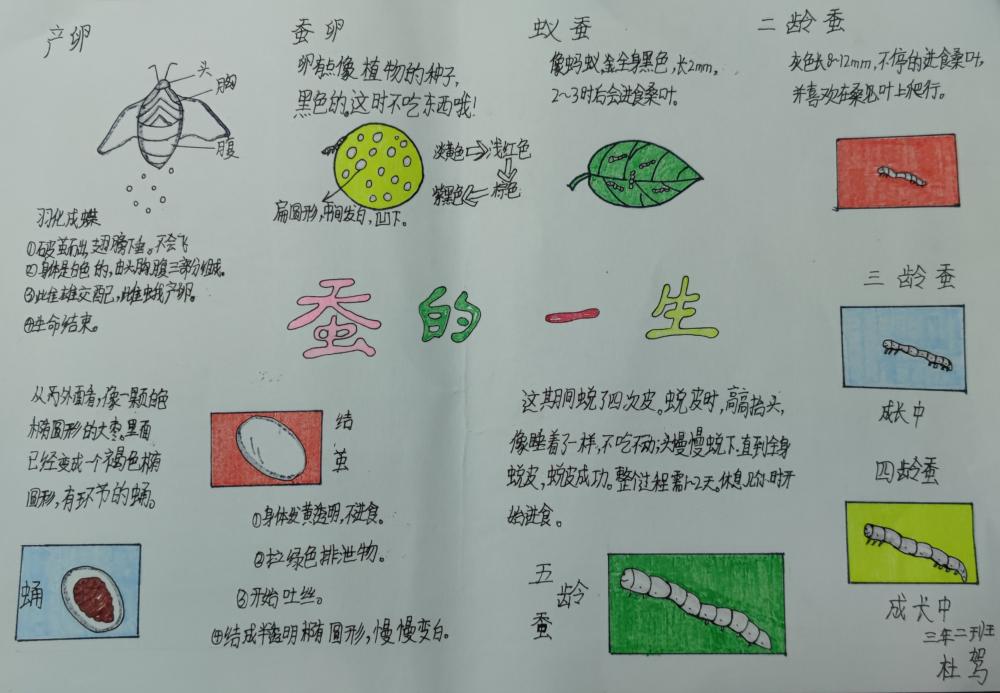 产卵
头
胸
腹
羽化成蝶
①破茧而出,翅膀下垂。不会飞
②身体是白色的,由头胸腹三部分组成。
③雌雄交配,雌蛾产卵。
④生命结束。
蚕卵
卵有点像植物的种子,
黑色的。这时不吃东西哦!
淡黄色
浅红色
棕色
紫黑色
扁圆形,中间发白,凹下。
蚁蚕
像蚂蚁,全身黑色,长2mm。
2~3时后会进食桑叶。
二龄蚕
灰色长8~12mm,不停的进食桑叶,
并喜欢在桑叶上爬行。
三龄蚕
成长中
四龄蚕
成长中
蚕的一生
这期间蜕了四次皮。蜕皮时,高高抬头,
像睡着了一样,不吃不动;头慢慢蜕下.直到全身
蜕皮,蜕皮成功。整个过程需1-2天。休息
时开
始进食。
五龄
蚕
结
茧
①身体发黄透明,不进食。
②拉绿色排泄物。
③开始吐丝。
④结成半透明椭圆形,慢慢变白。
从外面看,像一颗白色
椭圆形的大枣。里面
已经变成一个褐色椭
圆形,有环节的蛹。
蛹
三年二班
杜驾